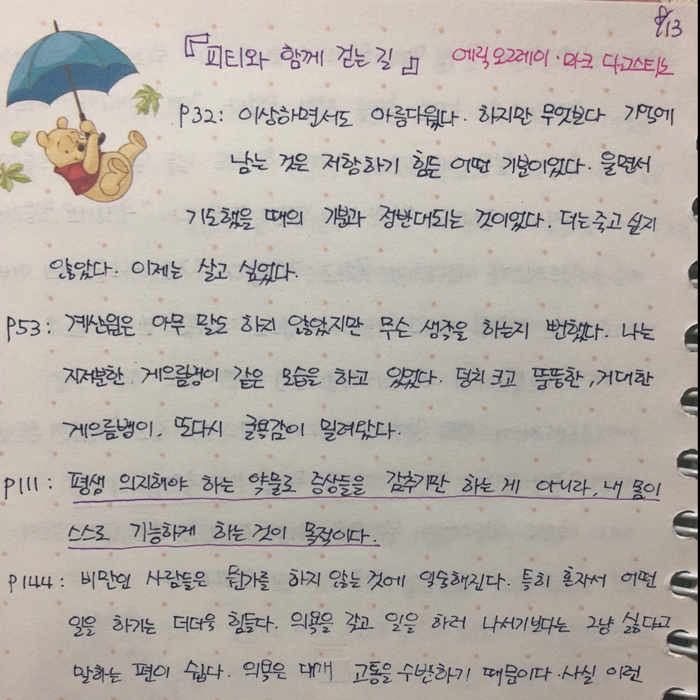 8/13
『피티와 함께 걷는 길』 에릭 오그레이·마크 다고스티노
P32: 이상하면서도 아름다웠다. 하지만 무엇보다 기억에
남는 것은 저항하기 힘든 어떤 기분이었다. 울면서
기도했을 때의 기분과 정반대되는 것이었다. 더는 죽고 싶지
않았다. 이제는 살고 싶었다.
P53: 계산원은 아무 말도 하지 않았지만 무슨 생각을 하는지 뻔했다. 나는
지저분한 게으름뱅이 같은 모습을 하고 있었다. 덩치 크고 뚱뚱한, 거대한
게으름뱅이. 또다시 굴욕감이 밀려왔다.
P111: 평생 의지해야 하는 약물로 증상들을 감추기만 하는 게 아니라, 내 몸이
스스로 기능하게 하는 것이 목적이다.
P144: 비만인 사람들은 뭔가를 하지 않는 것에 익숙해진다. 특히 혼자서 어떤
일을 하기는 더더욱 힘들다. 의욕을 갖고 일을 하러 나서기보다는 그냥 싫다고
말하는 편이 쉽다. 의욕은 대개 고통을 수반하기 때문이다. 사실 이런